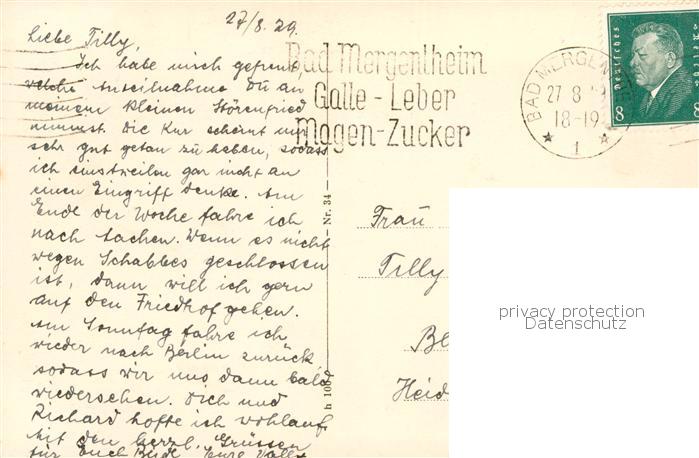 27/8.29.
Liebe Tilly,
Ich habe mich gefreut,
welche Anteilnahme Du an
meinem kleinen Störenfried
nimmst. Die Kur scheint mir
sehr gut getan zu haben, sodass
ich einstweilen gar nicht an
einen Eingriff denke. Am
Ende der Woche fahre ich
nach Aachen. Wenn es nicht
wegen Schabbes geschlossen
ist, dann will ich gern
auf den Friedhof gehen.
Am Sonntag fahre ich
wieder nach Berlin zurück
sodass wir uns dann bald
wiedersehen. Dich und
Richard hoffe ich wohlauf.
Mit den herzl. Grüssen
für Euch Beide Eure
Bad Mergentheim
Galle - Leber
Magen - Zucker
BAD MERGEN
27 8 29
18-19
* 1 *
Deutsches
8 8
Nr. 34
Frau
Tilly
Heid
privacy protection
Datenschutz